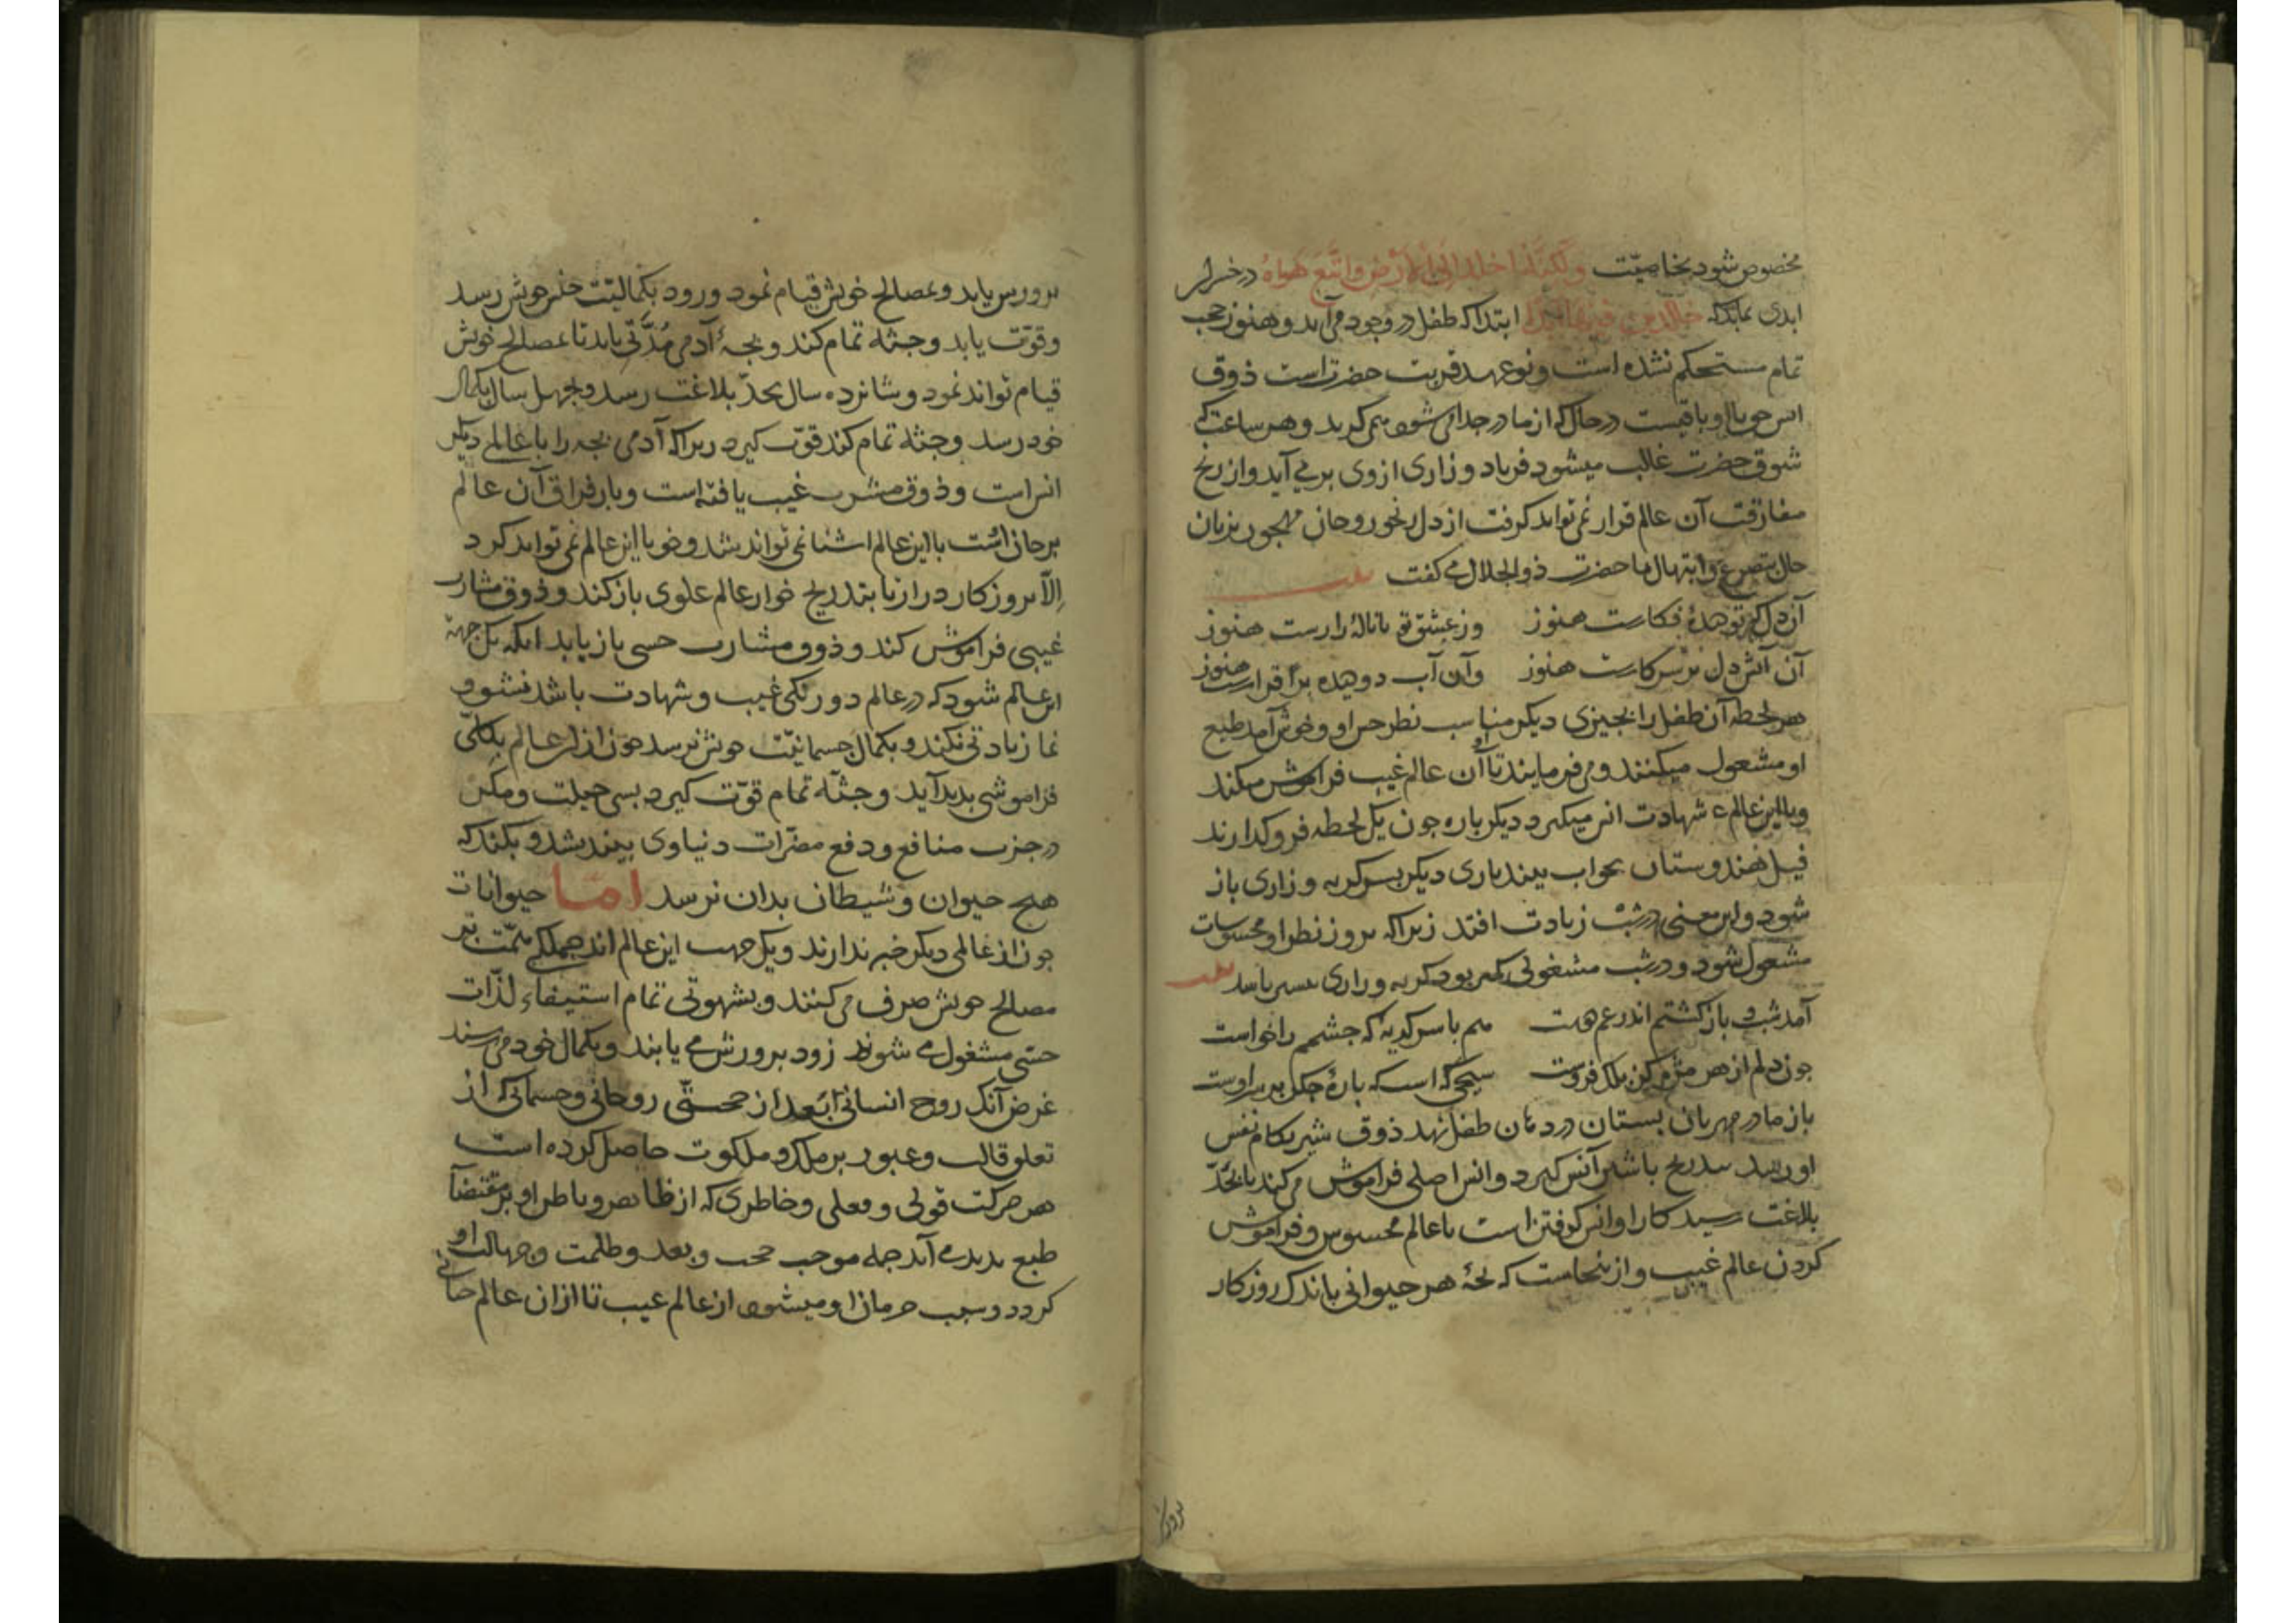 مخصوص شود بخاصیّت ولکنّه اخلد الی الارض واتّبع هواهُ در خسران
ابدی بماند که خالدین فیها ابدا ابتدا که طفل در وجود می آید و هنوز حجب
تمام مستحکم نشده است و نوعهد قربت حضرتست ذوق
انس حق با او باقیست در حال که از مادر جدا می شود می گرید و هر ساعت که
شوق حضرت غالب میشود فریاد و زاری از وی بر می آید و از رنج
مفارقت آن عالم قرار نمی تواند کرفت از دل رنجور روحانی مهجور بزبان
حال بتضرع و ابتهال با حضرت ذوالجلال می کفت
آن دل که تو دیدهٔ فکارست هنوز وز عشق تو با نالهٔ زارست هنوز
آن آتش دل بر سر کارست هنوز وآن آب دو دیده برقرارست هنوز
هر لحظه آن طفل را بچیزی دیکر مناسب نظر حس او و خوش آمد طبع
او مشغول میکنند و می فرمایند تا آن عالم غیب فراموش میکند
وبا این عالم شهادت انس میکیرد دیکر باره جون یک لحظه فرو کذارند
فیل هندوستان بخواب بیند باری دیکر بسر کریه و زاری باز
شود و این معنی در شب زیادت افتد زیرا که بروز نظر او محسوسات
مشغول شود و در شب مشغولی کمتر بود کریه و زاری بیشتر باشد
آمد شب و باز کشتم اندر غم دوست هم با سر کریهٔ که جشمم را خواست
جون دلم از هر مژهٔ کز بلک فروست سیخی که است که بارهٔ جکر بر سر اوست
باز مادر مهربان بستان در دهان طفل نهد ذوق شیر بکام نفس
او رسد بتدریج با شیر آنس کیرد و انس اصلی فراموش می کند تا بحدّ
بلاغت رسید کار او انس کرفتن است با عالم محسوس و فراموش
کردن عالم غیب و از ینجاست که بجهٔ هر حیوانی باندک روزکار
برورش یابد و بمصالح خویش قیام نمود و زود بکمالیّت جنس خویش رسد
وقوّت یابد وجثه تمام کند و بجهٔ آدمی مُدّتی باید تا بمصالح خویش
قیام تواند نمود و شانزده سال بحدّ بلاغت رسد و بجهل سال بکمال
خود رسد وجثه تمام کند قوّت کیرد زیرا که آدمی بجه را با عالمی دیکر
انس است و ذوق مشرب غیب یافته است و بار فراق آن عالم
بر جان است با این عالم اشنا نمی تواند شد و خو با این عالم نمی تواند کرد
اِلّا بروزکار دراز تا بتدریج خو از عالم علوی باز کند و ذوق مشارب
غیبی فراموش کند و ذوق مشارب حسی باز یابد انکه یک جهة
این عالم شود که در عالم دو رنکی غیب و شهادت باشد نشو و
نما زیادتی نکند و بکمال جسمانیّت خویش نرسد جون از ان عالم بکلّی
فراموشی بدید آید وجثه تمام قوّت کیرد بسی حیلت و مکر
در جذب منافع و دفع مضرّات دنیاوی بیندیشد و بکند که
هیج حیوان و شیطان بدان نرسد امّا حیوانات
جون از عالمی دیکر خبر ندارند و یک جهت این عالم اند جملکی همّت بر
مصالح خویش صرف می کنند و بشهوتی تمام استیفاء لذّات
حسّی مشغول می شوند زود برورش می یابند و بکمال خود می رسند
غرض آنک روح انسانی بعد از حجب روحانی و جسمانی که از
تعلق قالب و عبور بر ملک و ملکوت حاصل کرده است
هر حرکت قولی و فعلی و خاطری که از ظاهر و باطن او بر مقتضاء
طبع بدید می آید جمله موجب حجب و بعد و ظلمت و جهالت او
کردد و سبب حرمان او میشود از عالم غیب تا ازان عالم